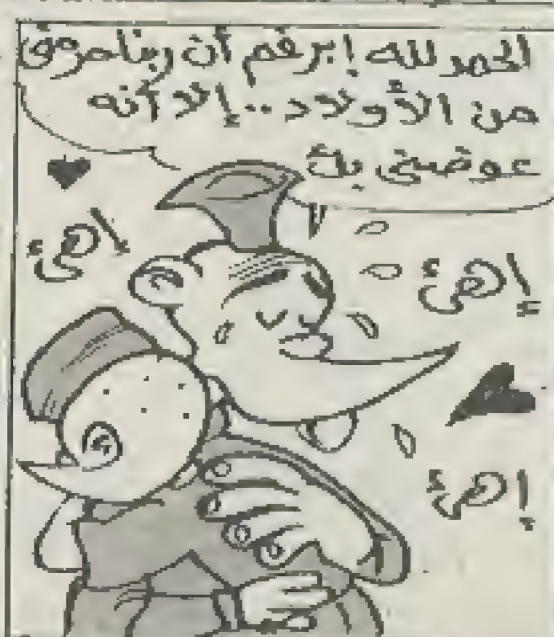 الحمد لله ! برغم أن ربنا حرمني
من الأولاد .. إلا أنه
عوضني بك
إهئ
إهئ
إهئ